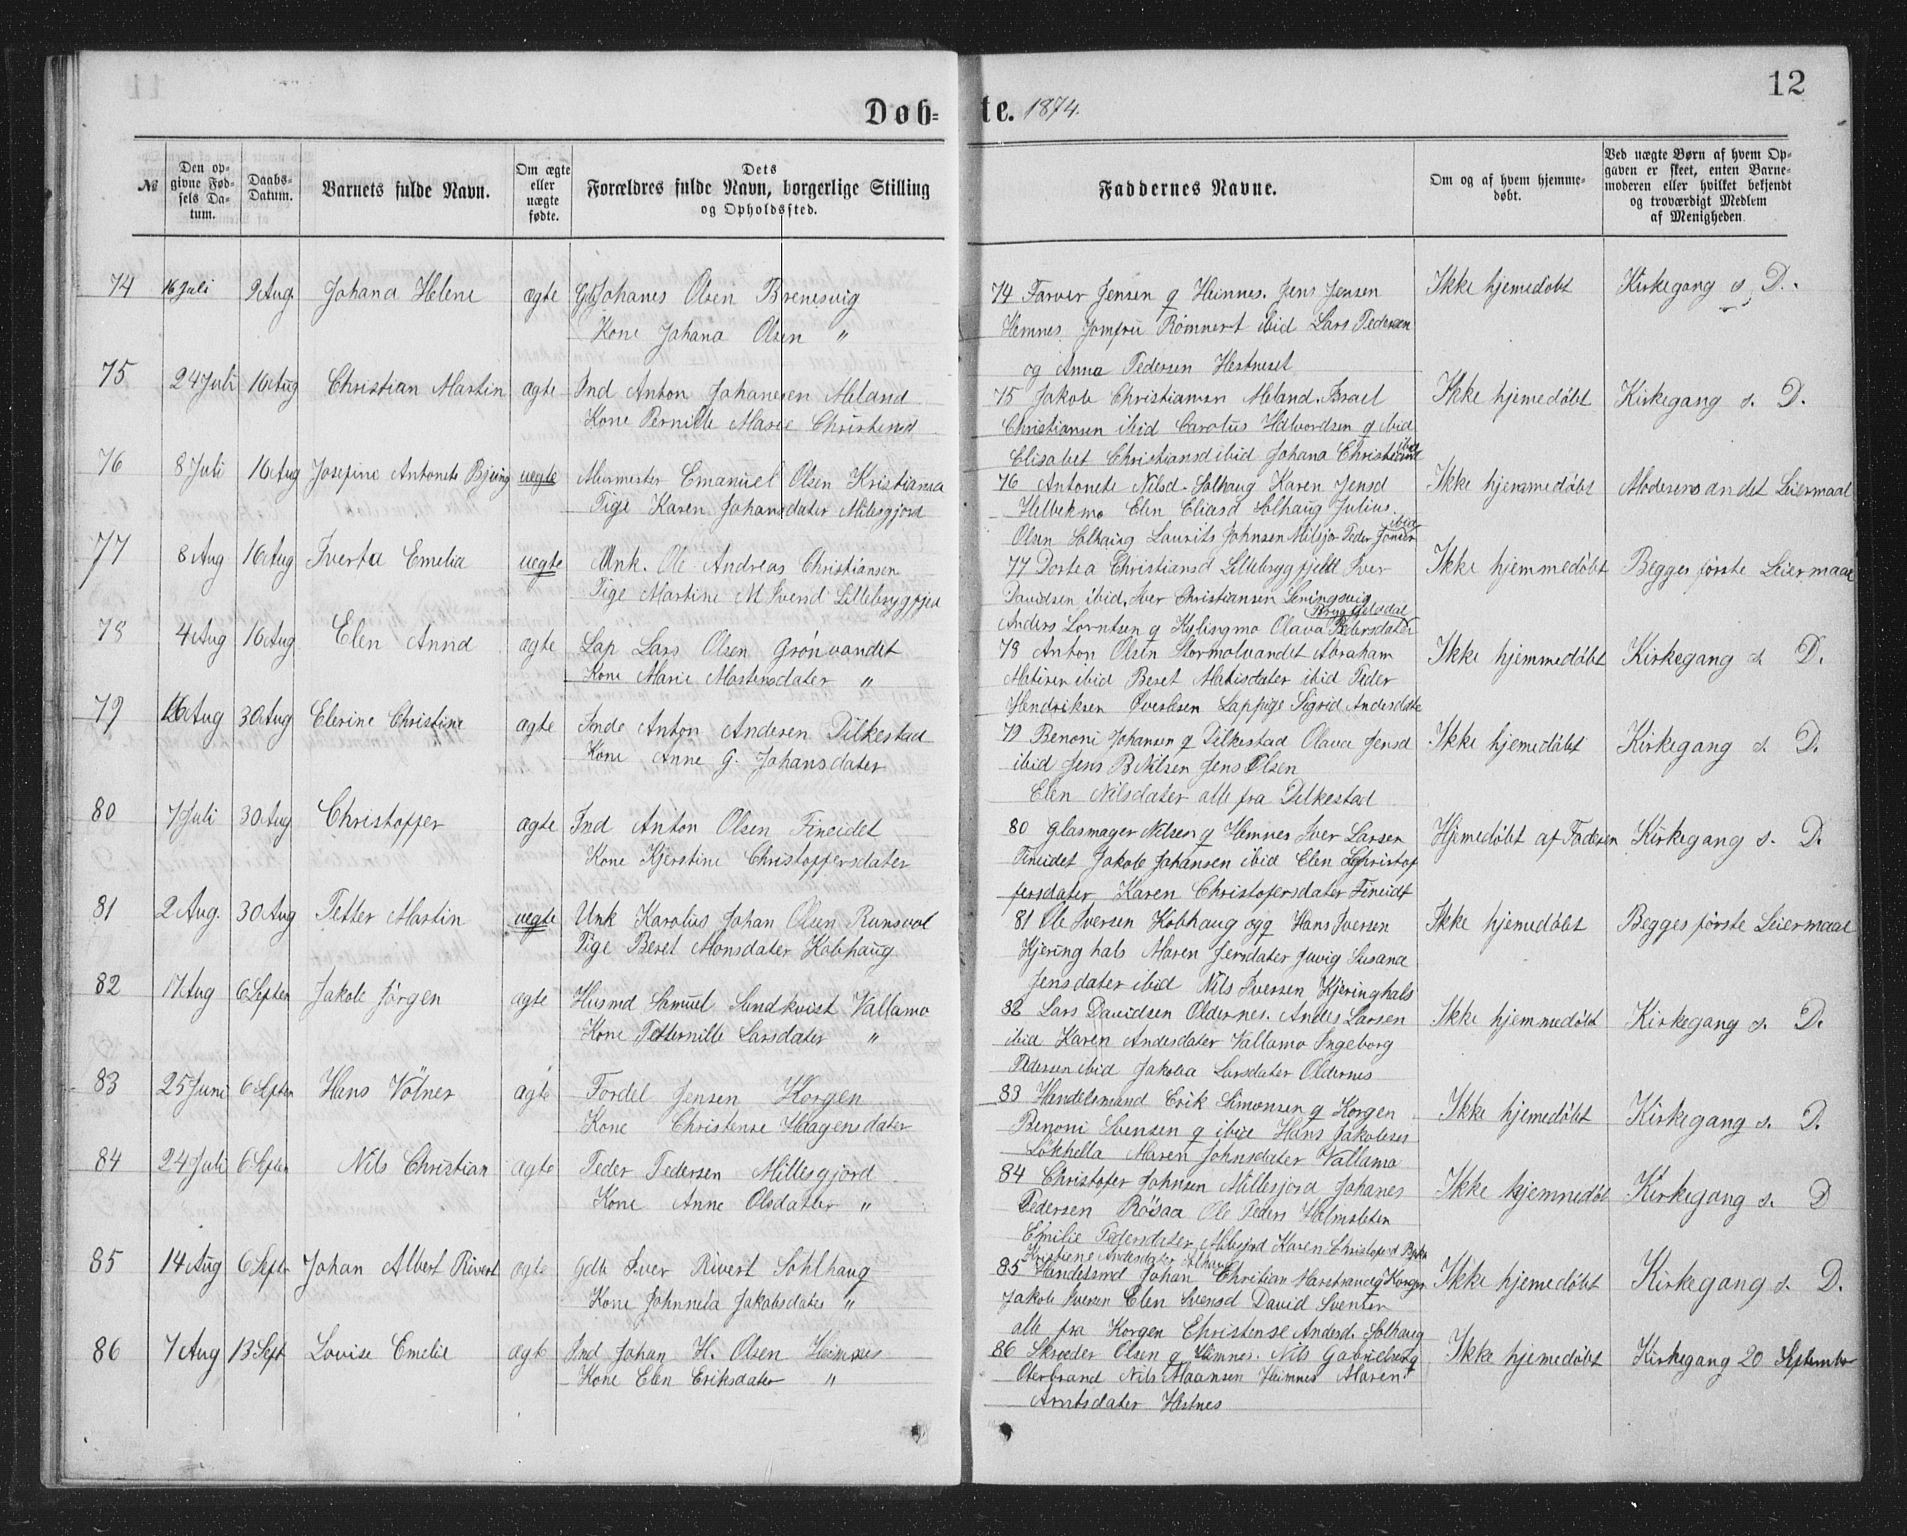 12
Døbte. 1874.
№
Den opgivne Fødsels Datum.
Daabs-Datum.
Barnets fulde Navn.
Om ægte eller uægte fødte.
Dets Forældres fulde Navn, borgerlige Stilling og Opholdssted.
Faddernes Navne.
Om og af hvem hjemmedøbt.
Ved uægte Børn af hvem Opgaven er skeet, enten Barnemoderen eller hvilket bekjendt og troværdigt Medlem af Menigheden.
74 16 Juli 9 Aug. Johana Helene ægte Gdb Johanes Olsen Brenesvig
Kone Johana Olsen "
74 Farver Jensen g Heimnes. Jens Jensen
Hemnes Jomfru Rømnert ibid Lars Pedersen
og Anna Pedersen Hestneset
Ikke hjemedøbt Kirkegang s. D.
75 24 Juli 16 Aug Christian Martin ægte Ind Anton Johanesen Meland
Kone Pernille Marie Christensd
75 Jakob Christiansen Meland. Israel
Christiansen ibid Carolus Halvordsen g ibid
Elisabet Christiansd ibid Johana Christensd ibid
Ikke hjemedøbt Kirkegang s. D.
76 8 Juli 16 Aug Josefine Antonete Bjerg uægte Murmester Emanuel Olsen Kristiania
Pige Karen Johansdater Milesgjord
76 Antonete Nilsd. Solhaug Karen Jensd
Helbekmo Elen Eliasd Solhaug Julius
Olsen Solhaug Laurits Johnsen Milesjor Peder Jonsen ibid
Ikke hjemmedøbt Moderens andet Leiermaal
77 8 Aug 16 Aug Iverta Emelia uægte Unk. Ole Andreas Christiansen
Pige Martine M Svend Lillebrygfjed
77 Dortea Christiansd Lillebrygfjeld Iver
Davidsen ibid, Iver Christiansen Leningsvig
Anders Lorntsen g Kylingmo Olava Petersdater Brygfjeldal
Ikke hjemmedøbt Begges første Leiermaal
78 4 Aug 16 Aug Elen Anna ægte Lap Lars Olsen Grønvandet
Kone Marie Mortensdater "
78 Anton Olsen Stormolvandet Abraham
Matisen ibid Beret Matisdater ibid Peder
Hendriksen Øverlesen Lappige Sigrid Andersdate
Ikke hjemmedøbt Kirkegang s. D.
79 16 Aug 30 Aug Elerine Christine ægte Inde Anton Andersen Dilkestad
Kone Anne G. Johansdater
79 Benoni Johansen g Dilkestad Olava Jensd
ibid Jens B Nilsen Jens Olsen
Elen Nilsdater alle fra Dilkestad
Ikke hjemedøbt Kirkegang s. D.
80 7 Juli 30 Aug Christoffer ægte Ind Anton Olsen Fineidet
Kone Kjerstine Christoffersdater
80 Glasmager Nilsen g Hemnes Iver Larsen
Fineidet Jakob Johansen ibid Elen Christof
fersdater Karen Christofersdater Fineidet
Hjemedøbt af Faderen Kirkegang s. D.
81 2 Aug. 30 Aug Petter Martin uegte Unk Karolius Johan Olsen Runsvol
Pige Beret Monsdater Kobhaug
81 Ole Iversen Kobhaug og g Hans Iversen
Kjeringhals Maren Jensdater Juvig Susana
Jensdater ibid Nils Iversen Kjeringhals
Ikke hjemedøbt Begges første Leiermaal
82 17 Aug 6 Septer Jakob Jørgen ægte Husmd Samuel Sundkvist Vallamo
Kone Petternille Larsdater "
82 Lars Davidsen Oldernes. Anders Larsen
ibid Karen Andersdater Vallamo Ingeborg
Pedersen ibid Jakoba Larsdater Oldernes
Ikke hjemmedøbt Kirkegang s. D.
83 25 Juni 6 Septer Hans Volner ægte Fordel Jensen Korgen
Kone Christense Haagensdater
83 Handelsmand Erik Simonsen g Korgen
Benoni Svensen g ibid Hans Jakobsen
Løkhella Maren Johnsdater Vallamo
Ikke hjemedøbt Kirkegang s. D.
84 24 Juli 6 Septer Nils Christian ægte Peder Pedersen Millesgjord
Kone Anne Olsdatter "
84 Christofer Johnsen Millesjord Johanes
Pedersen Røsaa Ole Peders Halmsleten
Emilie Pedersdater Milesjord Karen Christoferd
Kristiene Andersdater Solhaug
Ikke hjemmedøbt Kirkegang s. D
85 14 Aug 6 Septer Johan Albert Rivert ægte Gdb Iver Rivert Sohlhaug
Kone Johnneta Jakobsdater "
85 Handelsmd Johan Christian Marstrander g Korgen
Jakob Iversen Elen Svensd David Svensen
alle fra Korgen Christense Andersd. Solhaug
Ikke hjemedøbt Kirkegang s. D.
86 7 Aug 13 Sept Lovise Emelie ægte Ind Johan H. Olsen Heimnes
Kone Elen Eriksdater "
86 Skreder Olsen g Hemnes. Nils Gabrielsen g
Oterbrand Nils Maansen Heimnes Maren
Arntsdater Hestnes
Ikke hjemedøbt Kirkegang 20 September